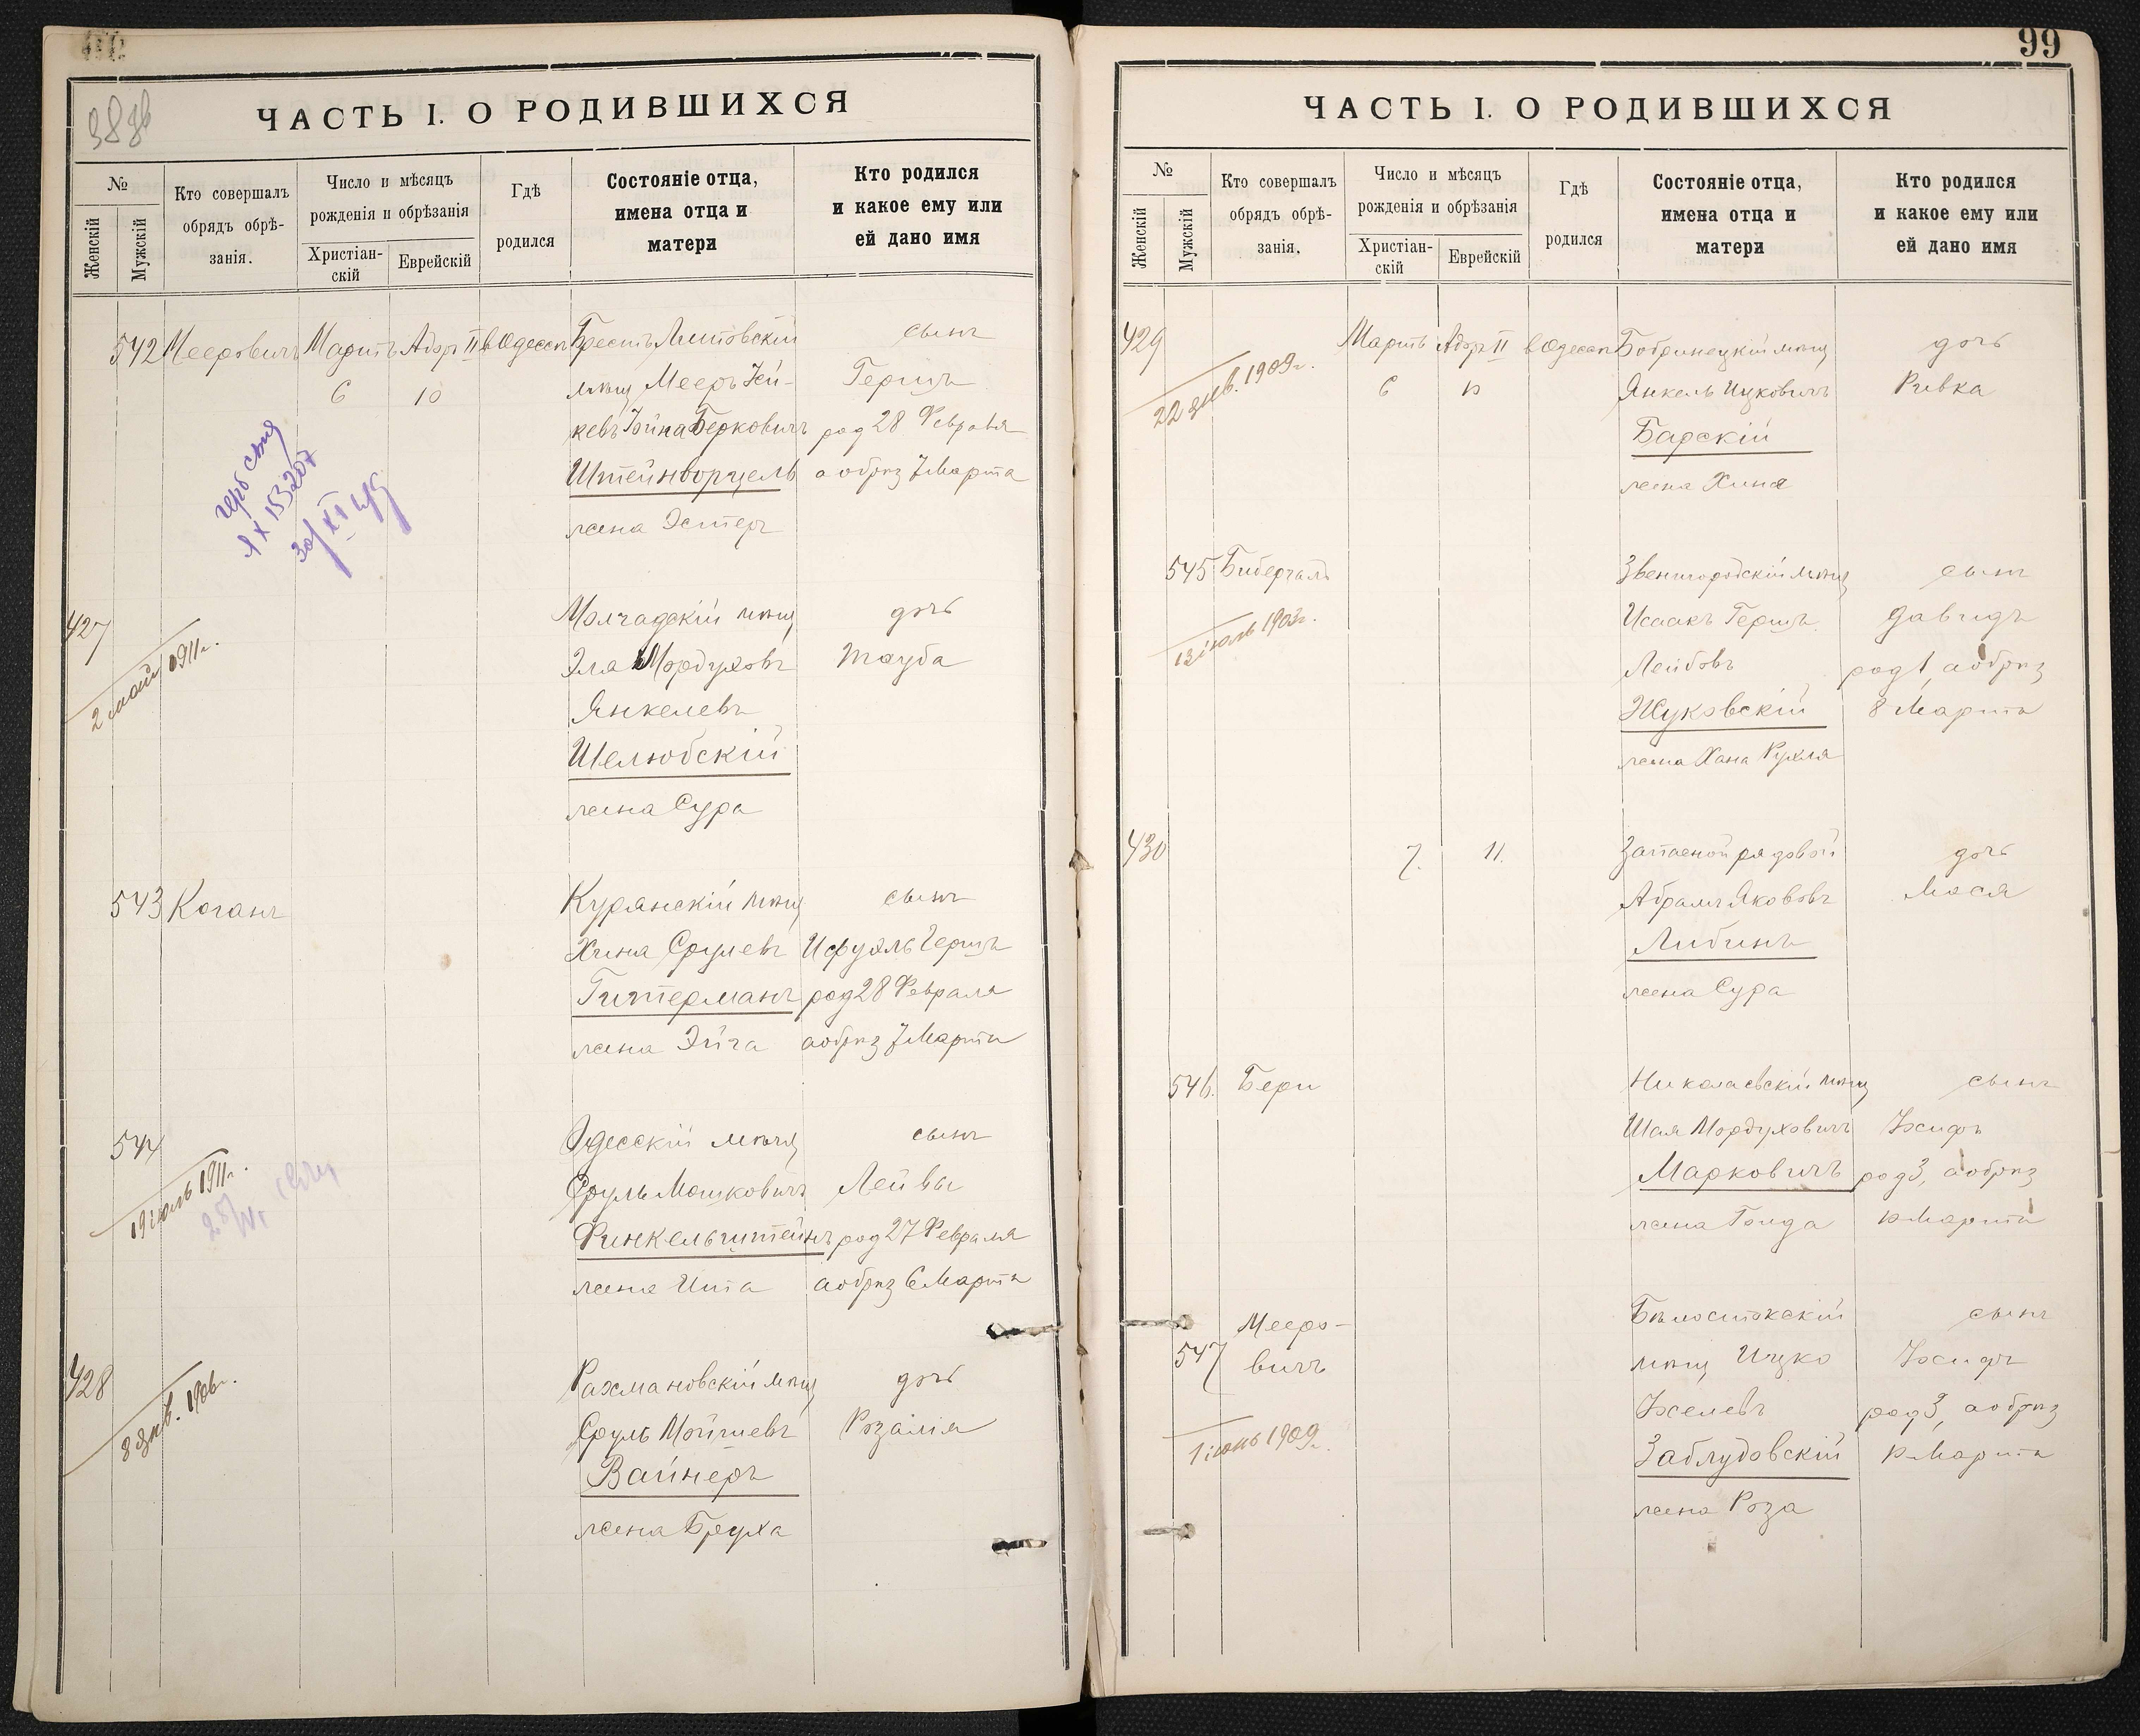 38 зв
ЧАСТЬ I. О РОДИВШИХСЯ
№
Женскій
Мужскій
Кто совершалъ
обрядъ обрѣ-
занія.
Число и мѣсяцъ
рожденія и обрѣзанія
Христіан-
скій
Еврейскій
Гдѣ
родился
Состояніе отца,
имена отца и
матери
Кто родился
и какое ему или
ей дано имя
542 Мееровичъ Мартъ Адаръ II в Одессѣ Брестъ Литовскій сынъ
6 10 мѣщ Мееръ Гершъ
кевъ Іойна Берковичъ род 28 Февраля
Штейнворцель а обрѣз 7 Марта
жена Эстеръ
1 X 153207
427 Молчадскій мѣщ дочь
2 май 1911г.
Эля Мордуховъ Тауба
Янкелевъ
Шелюбскій
жена Сура
543 Коганъ Курянскій мѣщ сынъ
Хина Срулевъ Исруэль Гершъ
Гитерманъ род 28 Февраля
жена Эйга а обрѣз 7 Марта
544 Одесскій мѣщ сынъ
19 іюль 1911г.
Сруль Мошковичъ Лейвы
Финкельштейнъ род 27 Февраля
жена Ита а обрѣз 6 Марта
428 Рахмановскій мѣщ дочь
8 янв. 1906г.
Сруль Мойшевъ Розалія
Вайнеръ
жена Бруха
99
ЧАСТЬ I. О РОДИВШИХСЯ
№
Женскій
Мужскій
Кто совершалъ
обрядъ обрѣ-
занія.
Число и мѣсяцъ
рожденія и обрѣзанія
Христіан-
скій
Еврейскій
Гдѣ
родился
Состояніе отца,
имена отца и
матери
Кто родился
и какое ему или
ей дано имя
429 Мартъ Адаръ II в Одессѣ Бобринецкій мѣщ дочь
22 янв. 1909г.
6 10 Янкель Ицковичъ Ривка
Барскій
жена Хиня
545 Биберталь Звенигородскій мѣщ сынъ
13 іюль 1903г.
Исаакъ Гершъ Давидъ
Лейбовъ род 1, а обрѣз
Жуковскій 8 Марта
жена Хана Рухля
430 7. 11. Запасной рядовой дочь
Абрамъ Якововъ Мася
Либинъ
жена Сура
546. Бери Николаевскій мѣщ сынъ
Шая Мордуховичъ Іосифъ
Марковичъ род 3, а обрѣз
жена Голда 10 Марта
547 Мееро- Бѣлостокскій сынъ
вичъ мѣщ Ицко Іосифъ
Іоселевъ род 3, а обрѣз
1 іюнь 1909г.
Заблудовскій 10 Марта
жена Роза